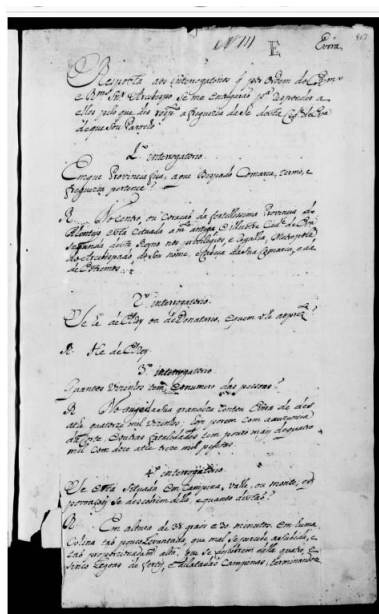 Nº 111 E Evora 467
Resposta aos interrogatorios q̃ por Ordem do Exmº
e Rmº Snr Arcebispo se me
elles pelo que diz a freguezia da Se desta Cide
de que sou Parocho
1º interrogatorio
Em que Provincia fica, a que Bispado Comarca, termo, e
freguezia pertence?
R No centro, ou Coração da fertilissima Provincia do
Alentejo esta a antiga, e illustre Cide de
Segunda deste Reyno nos privilegios, e Metropole
do Arcebispado, do seu nome, Cabeça da sua Comarca, e da
de Estremos
2º interrogatorio
Se he de ElRey ou de Donatario, e quem o he ao prezte?
R He de ElRey
3º interrogatorio
Quantos Vizinhos tem, e o numero das pessoas?
R No da sua grandeza contou Evora de des
athe quatorze mil Vizinhos, hoje porem com a auzencia
da Corte, e outras fatalidades tem pouco mais de quatro
mil com doze athe treze mil pessoas
4º interrogatorio
Se esta Situada em Campina, Valle, ou monte, e q̃
povoaçoins se descobrem della, e quanto distas?
R Em altura de 38 graos e 30 minutos. Em huma
Colina tao pouco Levantada, que mal se
tao alta, que se descobrem della quatro, e
sinco Legoas de ferteis, e dilatadas Campinas, terminando